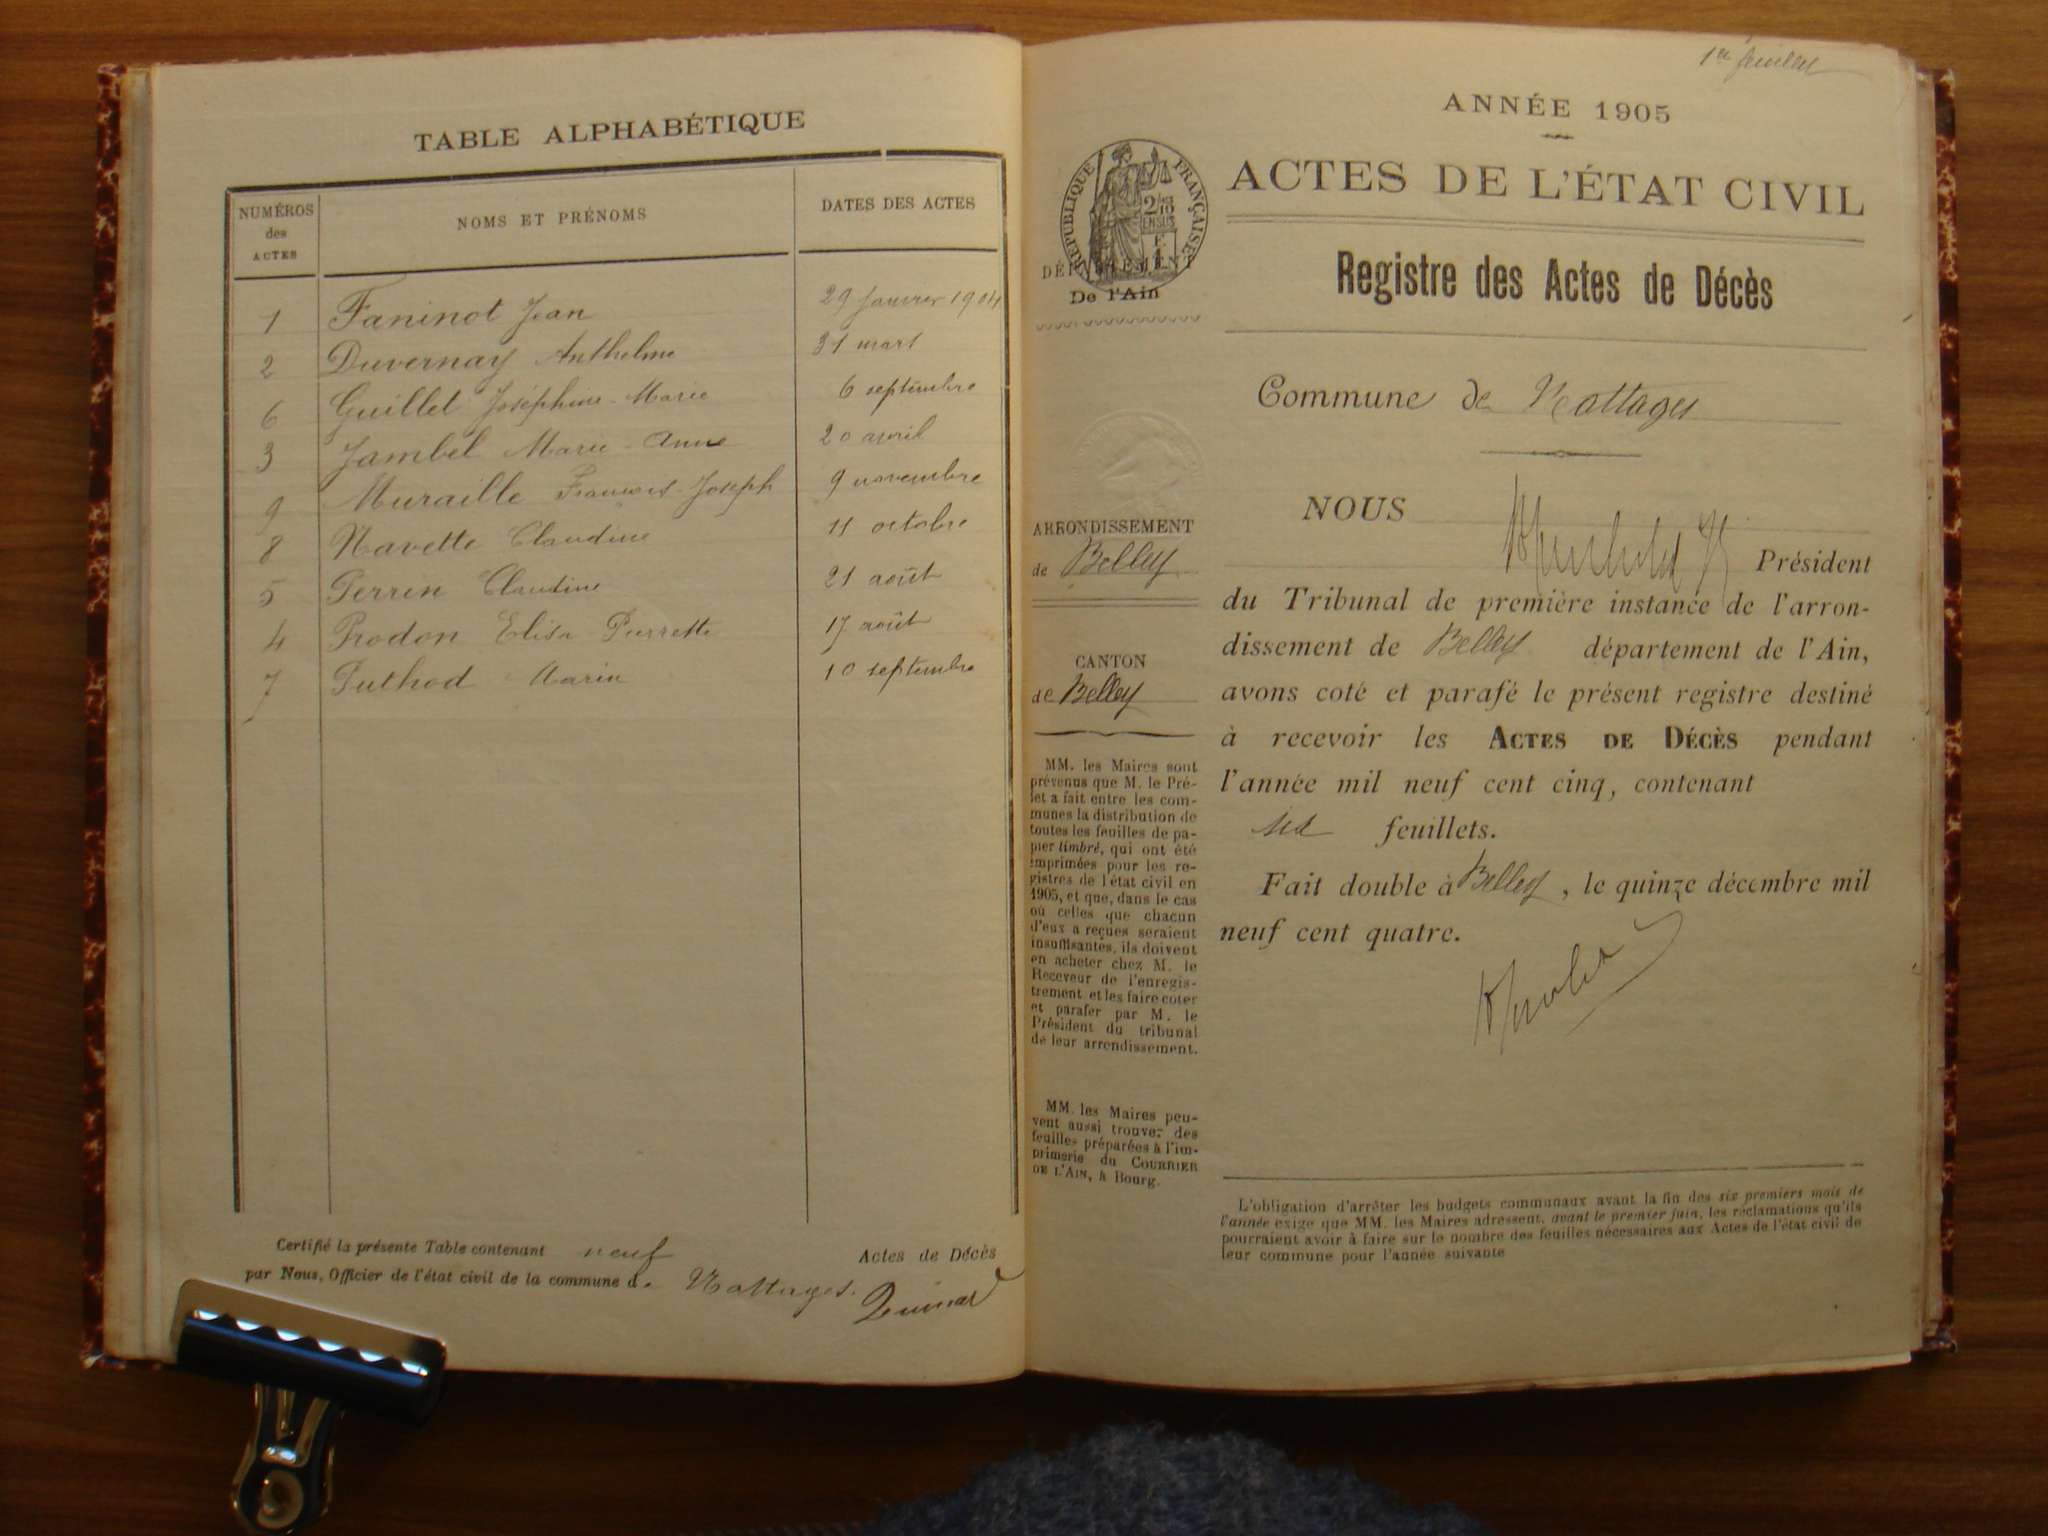 TABLE ALPHABÉTIQUE
NUMÉROS des ACTES NOMS ET PRÉNOMS DATES DES ACTES
1 Faninot Jean 29 Janvier 1904
2 Duvernay Anthelme 31 mars
6 Guillet Joséphine-Marie 6 septembre
3 Jambel Marie-Anne 20 avril
9 Muraille François-Joseph 9 novembre
8 Navette Claudine 11 octobre
5 Perrin Claudine 21 août
4 Prodon Elisa-Pierrette 17 août
7 Puthod Marin 10 septembre
Certifié la présente Table contenant neuf Actes de Décès
par Nous, Officier de l'état civil de la commune de Nattages.
1er feuillet
ANNÉE 1905
ACTES DE L'ÉTAT CIVIL
Registre des Actes de Décès
RÉPUBLIQUE FRANÇAISE
2/10 EN SUS
DÉPARTEMENT
De l'Ain
Commune de Nattages
ARRONDISSEMENT
de Belley
CANTON
de Belley
MM. les Maires sont
prévenus que M. le Pré-
fet a fait entre les com-
munes la distribution de
toutes les feuilles de pa-
pier timbré, qui ont été
imprimées pour les re-
gistres de l'état civil en
1905, et que, dans le cas
où celles que chacun
d'eux a reçues seraient
insuffisantes, ils doivent
en acheter chez M. le
Receveur de l'enregis-
trement et les faire coter
et parafer par M. le
Président du tribunal
de leur arrondissement.
MM. les Maires peu-
vent aussi trouver des
feuilles préparées à l'im-
primerie du COURRIER
DE L'AIN, à Bourg.
NOUS
Président
du Tribunal de première instance de l'arron-
dissement de Belley département de l'Ain,
avons coté et parafé le présent registre destiné
à recevoir les ACTES DE DÉCÈS pendant
l'année mil neuf cent cinq, contenant
six feuillets.
Fait double à Belley, le quinze décembre mil
neuf cent quatre.
L'obligation d'arrêter les budgets communaux avant la fin des six premiers mois de
l'année exige que MM. les Maires adressent, avant le premier juin, les réclamations qu'ils
pourraient avoir à faire sur le nombre des feuilles nécessaires aux Actes de l'état civil de
leur commune pour l'année suivante